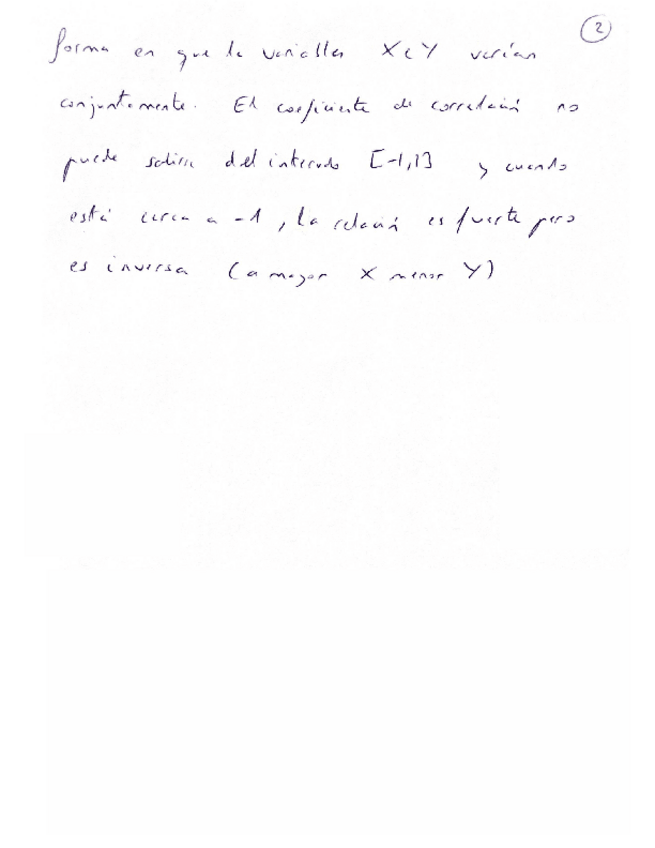 2
forma en que la variables X e Y varían
conjuntamente. El coeficiente de correlación no
puede salirse del intervalo [-1,1] y cuando
está cerca a -1, la relación es fuerte pero
es inversa (a mayor X menor Y)